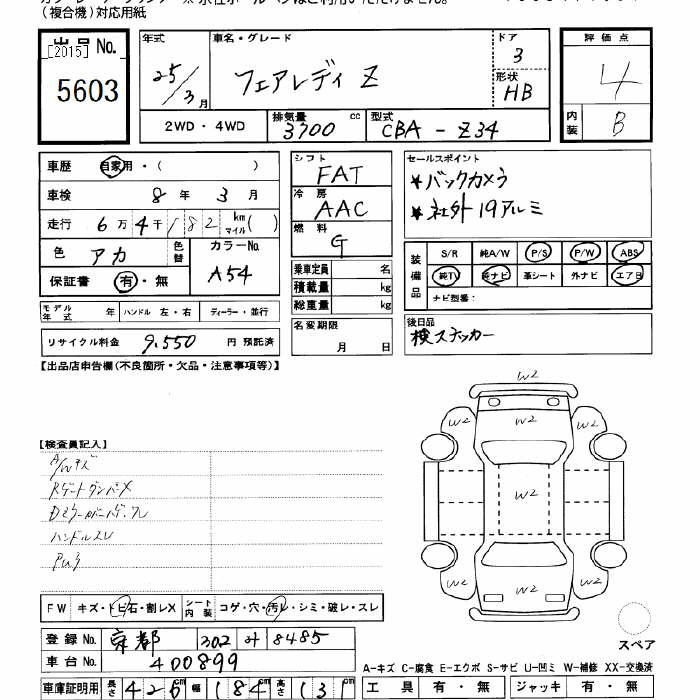 (複合機)対応用紙
出品 No.
[2015]
5603
年式 25/3月
車名・グレード フェアレディ Z
ドア 3
形状 HB
評価点 4
内装 B
2WD・4WD
排気量 3700 cc
型式 CBA - Z34
車歴 自家用・( )
車検 8年 3月
走行 6万4千182 km マイル( )
色 アカ 色替
カラーNo. A54
保証書 有・無
モデル年式 年 ハンドル 左・右 ディーラー・並行
リサイクル料金 9,550 円 預託済
シフト FAT
冷房 AAC
燃料 G
乗車定員 名
積載量 kg
総重量 kg
名変期限 月 日
セールスポイント
★バックカメラ
★社外19アルミ
装備品
S/R 純A/W P/S P/W ABS
純TV 純ナビ 革シート 外ナビ エアB
ナビ型番:
後日品
検ステッカー
【出品店申告欄(不良箇所・欠品・注意事項等)】
【検査員記入】
A/Wキズ
RゲートダンパーX
ハンドルスレ
W2
W2 W2 W2
W2
W2 W2 W2
W2
FW キズ・トビ石・割レX シート内装 コゲ・穴・汚レ・シミ・破レ・スレ
登録 No. 京都 302 8485
車台 No. 400899
車庫証明用 長さ 426cm 幅 184cm 高さ 131
スペア
A-キズ C-腐食 E-エクボ S-サビ U-凹ミ W-補修 XX-交換済
工具 有・無 ジャッキ 有・無